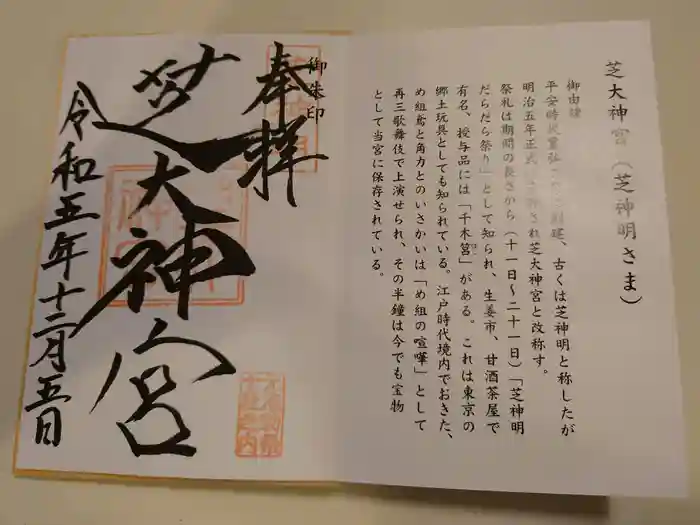 芝大神宮(芝神明さま)
御由緒
平安時代寛弘 創建、古くは芝神明と称したが
明治五年正式 され芝大神宮と改称す。
祭礼は期間の長さから(十一日～二十一日)「芝神明
だらだら祭り」として知られ、生姜市、甘酒茶屋で
有名、授与品には「千木筥」がある。これは東京の
郷土玩具としても知られている。江戸時代境内でおきた、
め組鳶と角力とのいさかいは「め組の喧嘩」として
再三歌舞伎で上演せられ、その半鐘は今でも宝物
として当宮に保存されている。
御朱印
奉拝
芝大神宮
令和五年十二月五日